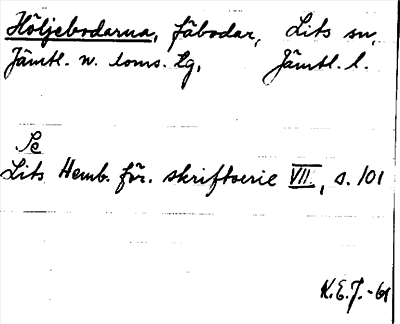 Höljebodarna, fäbodar, Lits sn,
Jämtl. n. doms. tg, Jämtl. l.
Se
Lits Hemb. för. skriftserie VII, s. 101
K.E.J. -61